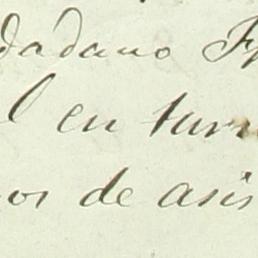 dadano F
l en turn
os de asis